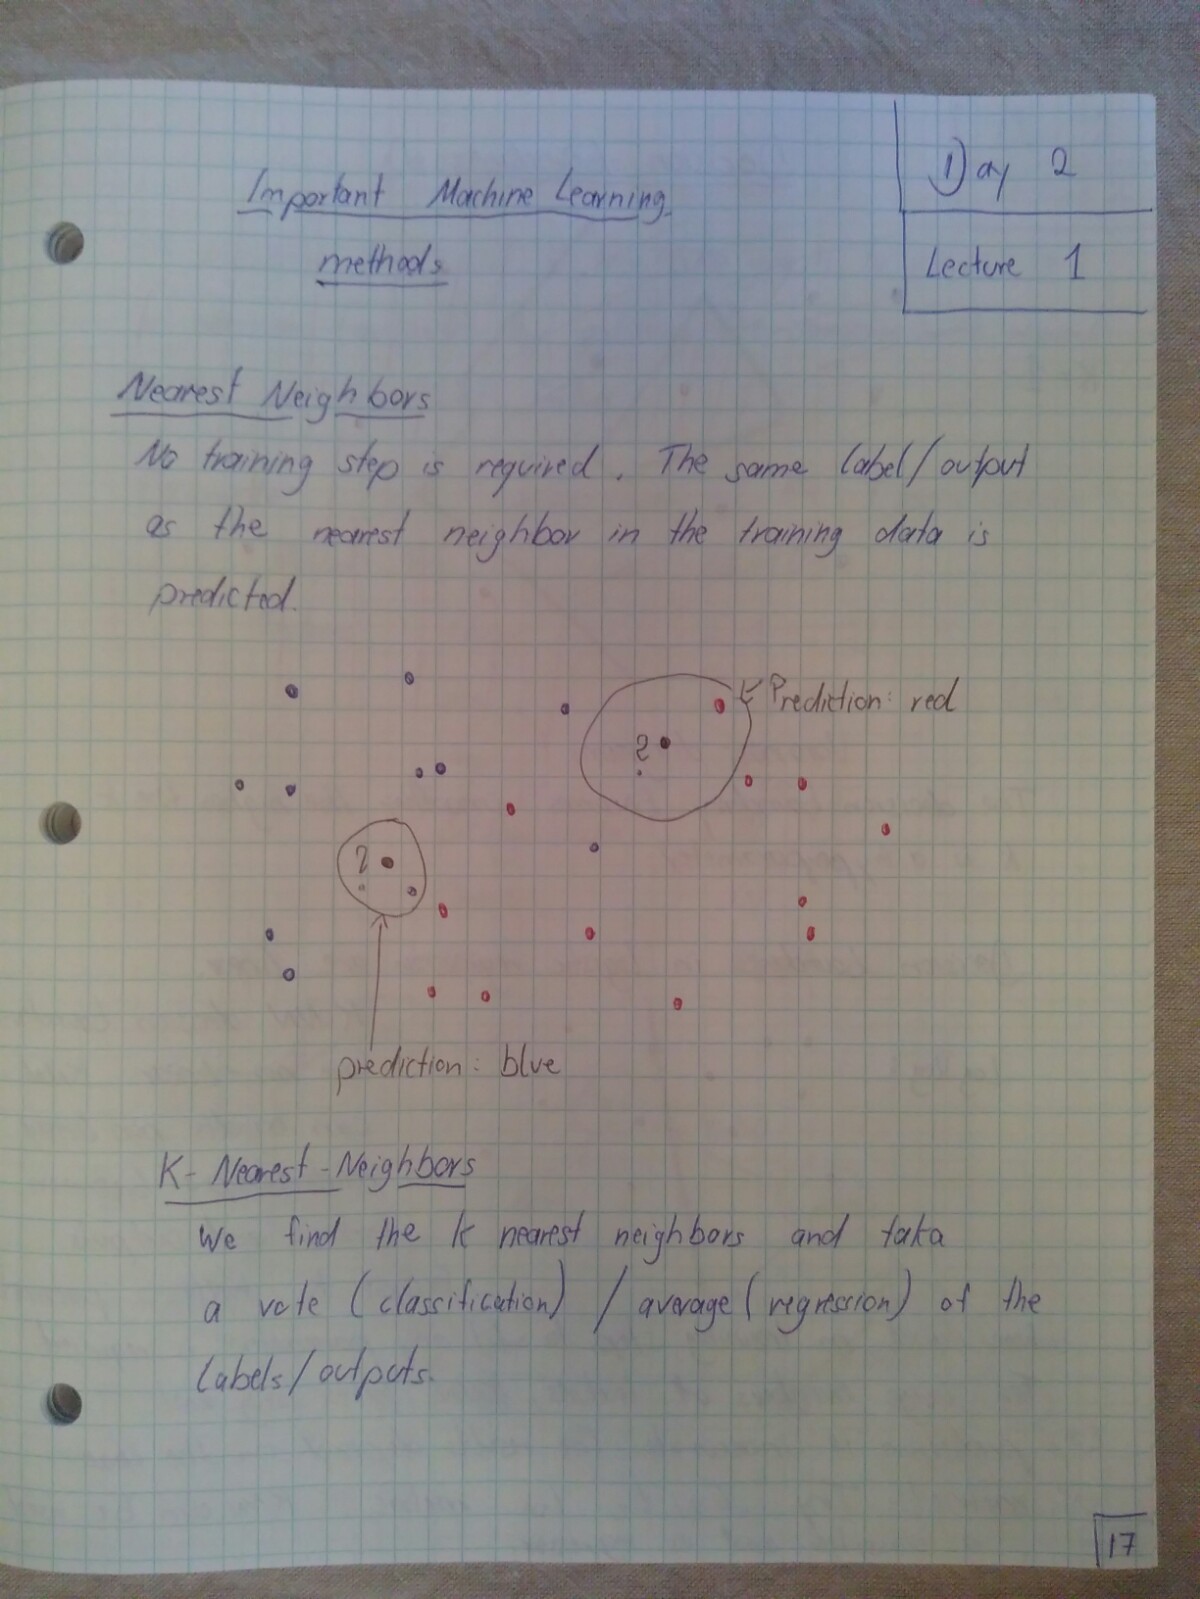 Day 2
Lecture 1
Important Machine Learning
methods
Nearest Neighbors
No training step is required. The same label/output
as the nearest neighbor in the training data is
predicted.
Prediction: red
?
?
prediction: blue
K-Nearest-Neighbors
We find the k nearest neighbors and taka
a vote (classification) / average (regression) of the
labels/outputs.
17